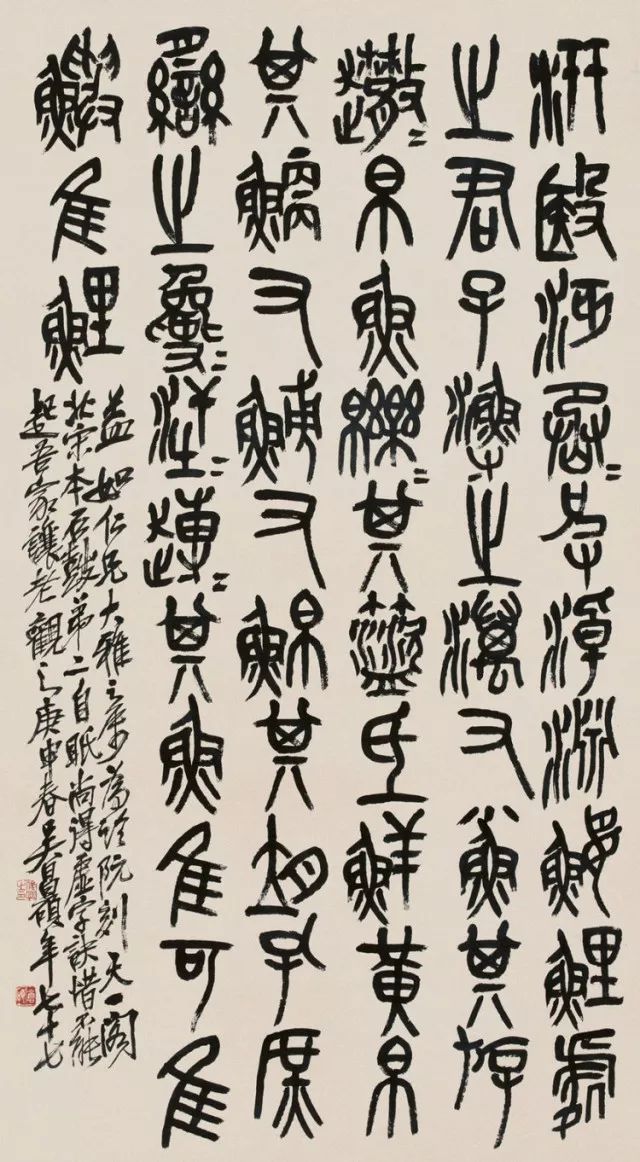 汧殹沔=丞皮淖淵鰋鯉處
之君子漁之澫又小魚其斿
趣=帛魚皪=其盜氐鮮黃帛
其鯾又鱄又鮊其孔庶
臠之汗=其魚隹可隹
鱮隹鯉
益如仁兄大雅之屬為臨阮刻天一閣
北宋本石鼓弟二自眂尚得虛字訣惜不能
起吾家讓老觀之庚申春吳昌碩年七十七